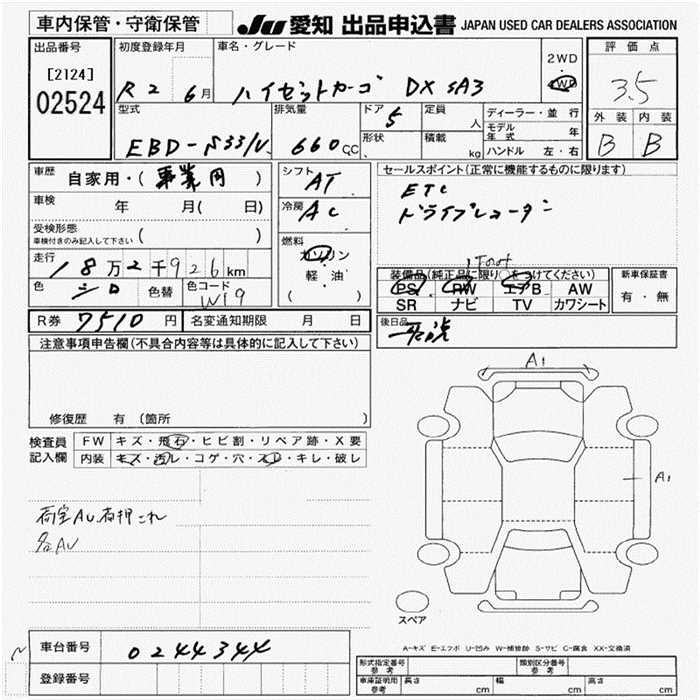 車内保管・守衛保管
JU 愛知 出品申込書 JAPAN USED CAR DEALERS ASSOCIATION
出品番号
[2124]
02524
初度登録年月
R2 6月
車名・グレード
ハイゼットカーゴ DX SA3
2WD
4WD
評価点
3.5
外装 内装
B B
型式
EBD-S331V
排気量
660 CC
ドア
5
形状
定員
人
積載
kg
ディーラー・並行
モデル年式 年
ハンドル 左・右
車歴
自家用・(事業用)
車検 年 月( 日)
受検形態
車検付きのみ記入して下さい ( )
走行
18万2千926km
色 シロ 色替 色コード W19
シフト
AT
冷房
AC
燃料
ガソリン
軽・油
( )
セールスポイント(正常に機能するものに限ります)
ETC
ドライブレコーダー
装備品(純正品に限り○をつけてください)
PS PW エアB AW
SR ナビ TV カワシート
新車保証書
有・無
R券 7510円 名変通知期限 月 日
後日品
注意事項申告欄(不具合内容等は具体的に記入して下さい)
修復歴 有 (箇所 )
検査員記入欄
FW キズ・飛石・ヒビ割・リペア跡・X要
内装 キズ・汚レ・コゲ・穴・スレ・キレ・破レ
荷室AU、有押これ
各AU
A1
A1
スペア
A-キズ E-エクボ U-凹み W-補修跡 S-サビ C-腐食 XX-交換済
車台番号 0244344
登録番号
形式指定番号 参考
類別区分番号 参考
車庫証明用 参考 長さ cm 幅 cm 高さ cm